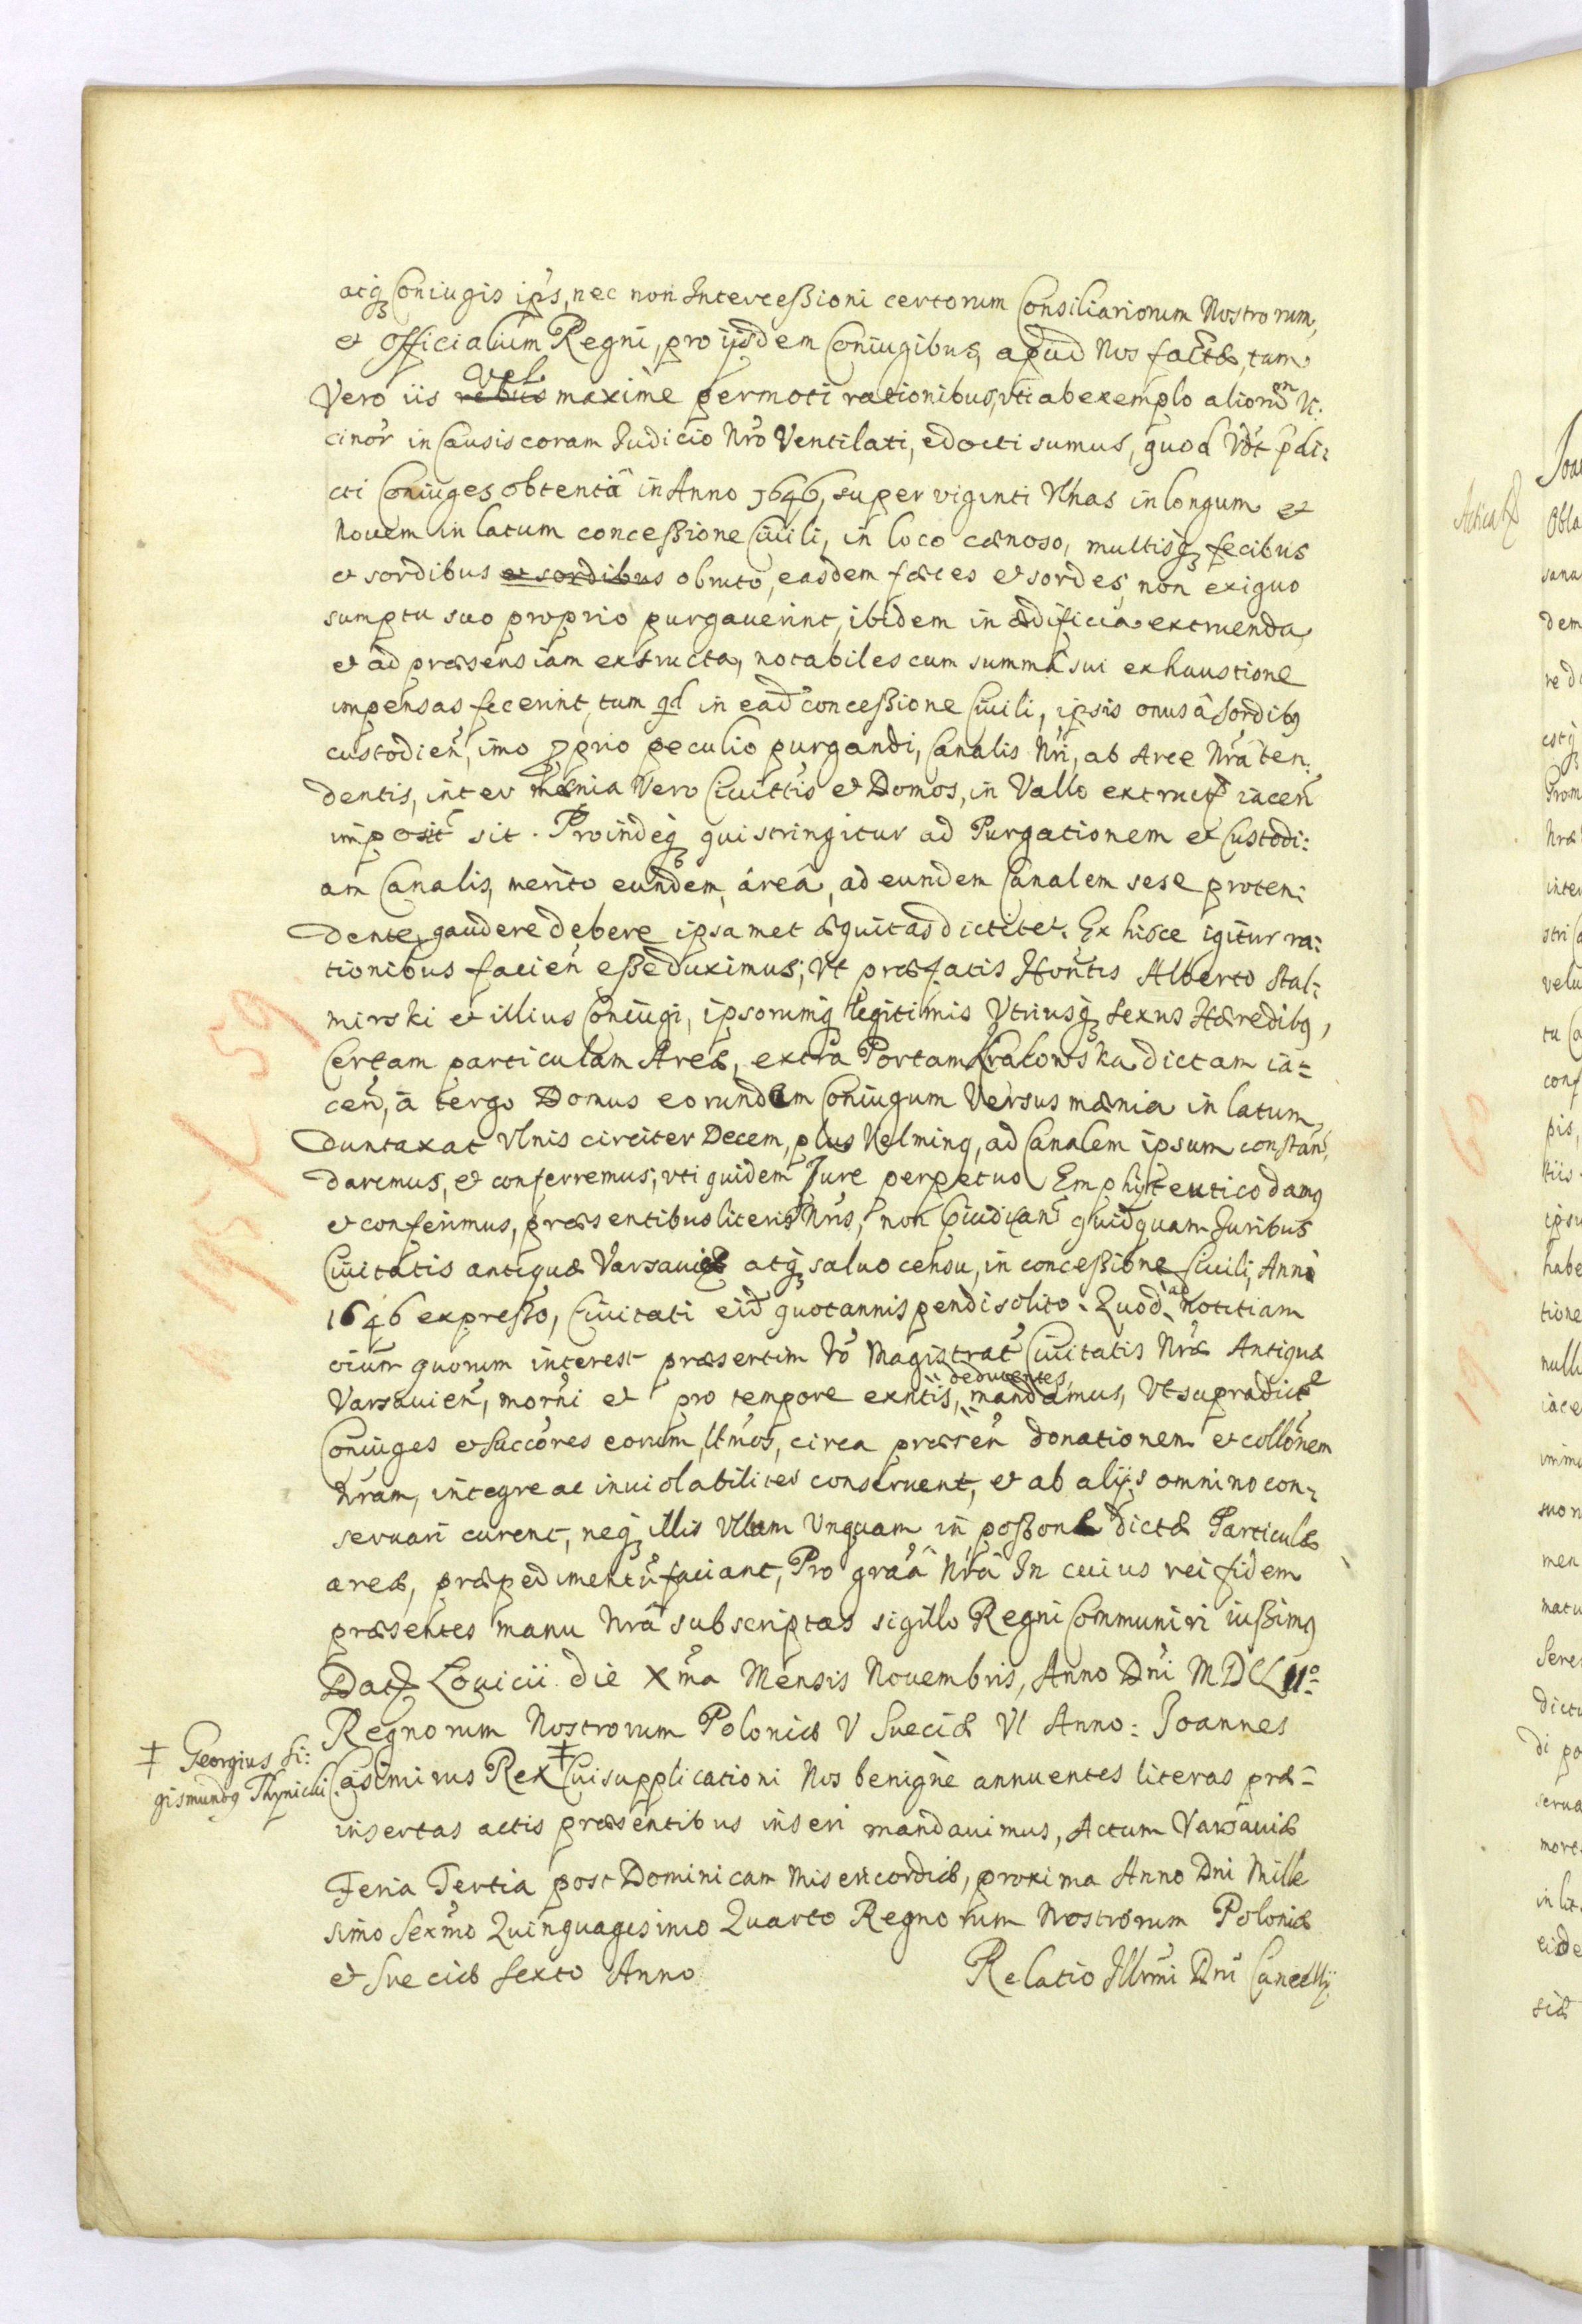 atq Coniugis ips, nec non Intercessioni certorum Consiliariorum Nostrorum,
et Officialium Regni, pro ijsdem Coniugibus, apud Nos factæ, tum
Vero iis rebus Vel maxime permoti rationibus, vti ab exemplo aliorum Vi:
cinor in Causis coram Iudicio Nro Ventilati, edocti sumus, quod pdi:
cti Coniuges obtentâ in Anno 1646, super viginti Vlnas in longum et
Nouem in latum concessione Ciuili, in loco cænoso, multisq fecibus
et sordibus et sordibus obruto, easdem fæces et sordes, non exiguo
sumptu suo proprio purgauerint, ibidem in ædificia extruenda,
et ad præsens iam extructa, notabiles cum summa sui exhaustione
impensas fecerint, tum qd in ead concessione Ciuili, ipsis onus â sordibq
custodien, imo pprio peculio purgandi, Canalis Nri, ab Arce Nra ten:
dentis, inter mænia Vero Ciuittis et Domos, in Vallo extruct iacen
imposit sit. Proindeq qui stringitur ad Purgationem et Custodi:
am Canalis, merito eundem, áreâ, ad eundem Canalem sese proten:
dente, gaudere debere ipsa met æquitas dictitet. Ex hisce igitur ra:
tionibus facien esse duximus; Vt præfatis Hontis Alberto Stal:
mirski et illius Coniugi, ipsorumq legitimis Vtriusq Sexus Hæredibq,
Certam particulam Areæ, extra Portam Krakowska dictam ia:
cen, a tergo Domus eorundem Coniugum Versus mænia in latum,
duntaxat Vlnis circiter Decem, plus Vel minq, ad Canalem ipsum constan,
daremus, et conferremus; vti quidem Jure perpetuo Emphiteutico damq
et conferimus, præsentibus literis Nris, non quidquam Iuribus
Ciuitatis antiquæ Varsauiæ atq saluo censu, in concessione Ciuili, Anni
1646 expresso, Ciuitati eid quotannis pendi solito. Quod ad notitiam
oium quorum interest præsertim Vo Magistrat Ciuitatis Nræ Antiquæ
Varsauien, morni et pro tempore exntis, deducentes, mandamus, Vt supradict
Coniuges et Succores eorum, ltmos, circa præsen donationem et collonem
Nram, integre ac inuiolabiliter conseruent, et ab alijs omnino con:
seruari curent, neq illis Vllam Vnquam in possone dictæ Particulæ
areæ, præpedimentu faciant, Pro graâ Nrâ In cuius rei fidem
præsentes manu Nrâ subscriptas sigillo Regni Communiri iussimq
Dat Louicii die Xma Mensis Nouembris, Anno Dni MDCLIIo
Regnorum Nostrorum Poloniæ V Sueciæ VI Anno: Joannes
Casimirus Rex ‡ Cui supplicationi Nos benignè annuentes literas præ=
insertas actis præsentibus inseri mandauimus, Actum Varsauiæ
Feria Tertia post Dominicam Misericordiæ, proxima Anno Dni Mille
simo Sexmo Quinquagesimo Quarto Regnorum Nostrorum Poloniæ
et Sueciæ Sexto Anno
Relatio Illrmi Dni Cancellij
‡ Georgius Si:
gismundq Thynicki